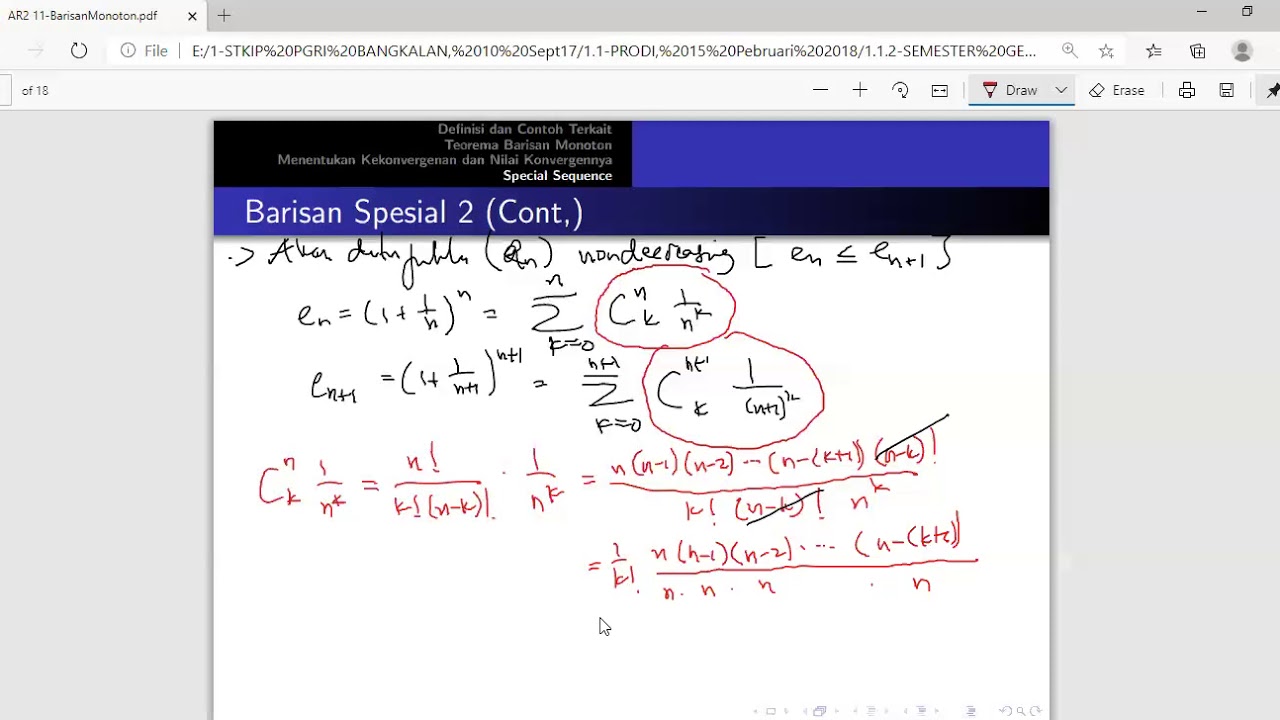 AR2 11-BarisanMonoton.pdf
File E:/1-STKIP%20PGRI%20BANGKALAN,%2010%20Sept17/1.1-PRODI,%2015%20Pebruari%202018/1.1.2-SEMESTER%20GE...
of 18 Draw Erase
Definisi dan Contoh Terkait
Teorema Barisan Monoton
Menentukan Kekonvergenan dan Nilai Konvergennya
Special Sequence
Barisan Spesial 2 (Cont,)
.> Akan ditunjukkan (en) nondecreasing [ en ≤ en+1 ]
en = (1 + 1/n)^n = Σ_{k=0}^{n} C^n_k 1/n^k
en+1 = (1 + 1/(n+1))^{n+1} = Σ_{k=0}^{n+1} C^{n+1}_k 1/(n+1)^k
C^n_k 1/n^k = n!/(k!(n-k)!) · 1/n^k = n(n-1)(n-2) ... (n-(k+1)) (n-k)! / (k! (n-k)! n^k)
= 1/k! n(n-1)(n-2) ... (n-(k+1)) / (n · n · n · n)